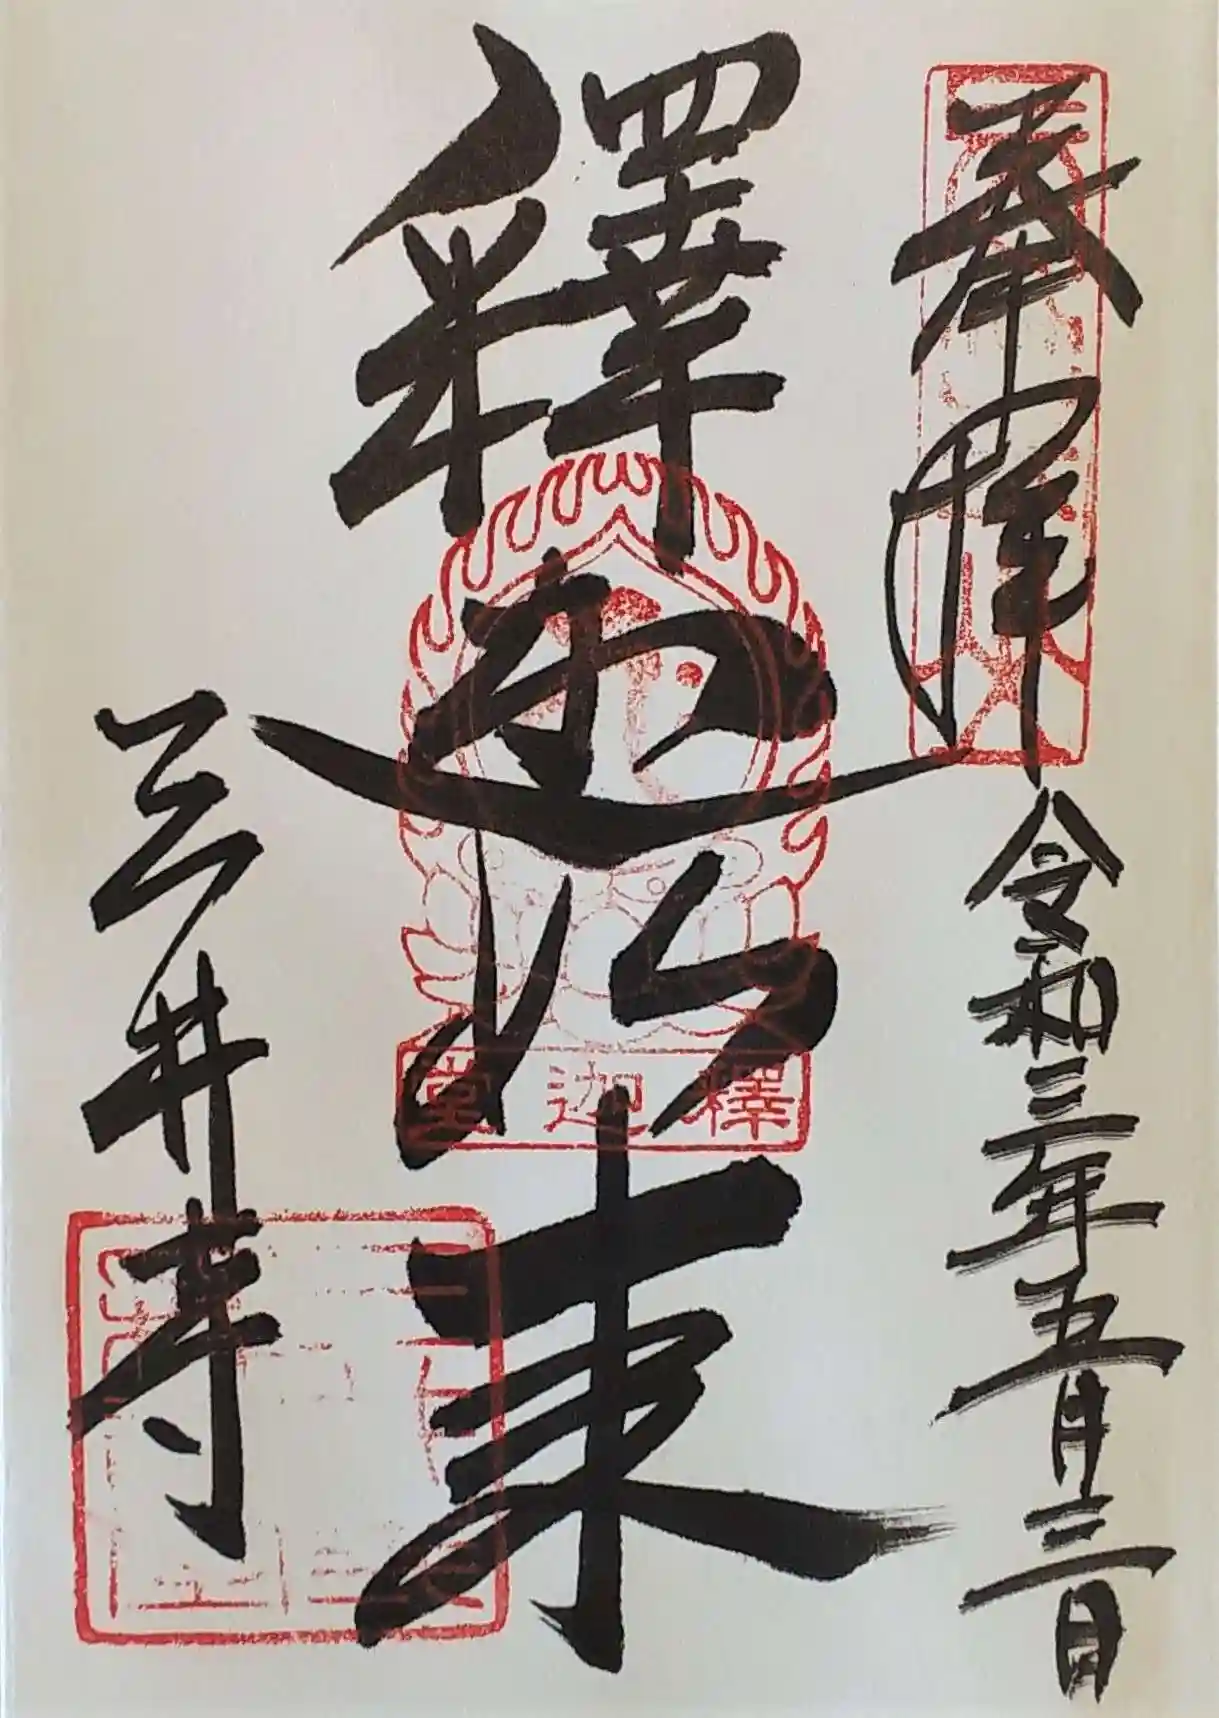 奉拝
令和三年五月三日
釋迦如来
釋迦堂
三井寺